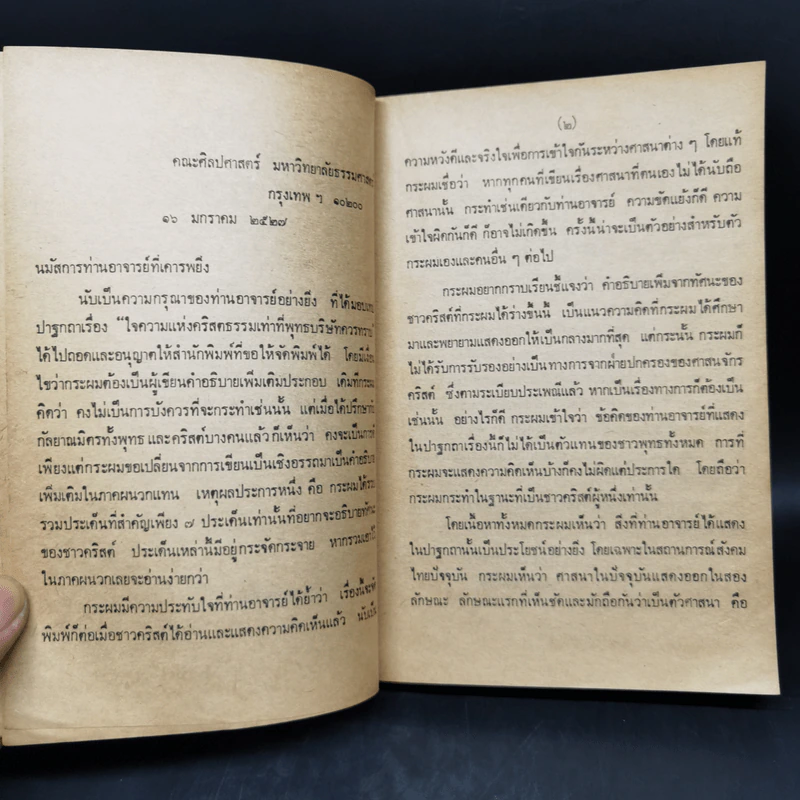 คณะศิลปศาสตร์ มหาวิทยาลัยธรรมศาสต
กรุงเทพ ฯ ๑๐๒๐๐
๑๖ มกราคม ๒๕๒๗
นมัสการท่านอาจารย์ที่เคารพยิ่ง
นับเป็นความกรุณาของท่านอาจารย์อย่างยิ่ง ที่ได้มอบ
ปาฐกถาเรื่อง "ใจความแห่งคริสตธรรมเท่าที่พุทธบริษัทควรทราบ"
ได้ไปถอดและอนุญาตให้สำนักพิมพ์ที่ขอให้จัดพิมพ์ได้ โดยมีเงื่อน
ไขว่ากระผมต้องเป็นผู้เขียนคำอธิบายเพิ่มเติมประกอบ เดิมทีกระผม
คิดว่า คงไม่เป็นการบังควรที่จะกระทำเช่นนั้น แต่เมื่อได้ปรึกษา
กัลยาณมิตรทั้งพุทธและคริสต์บางคนแล้ว ก็เห็นว่า คงจะเป็นการ
เพียงแต่กระผมขอเปลี่ยนจากการเขียนเป็นเชิงอรรถมาเป็นคำอธิบาย
เพิ่มเติมในภาคผนวกแทน เหตุผลประการหนึ่ง คือ กระผมได้รวบ
รวมประเด็นที่สำคัญเพียง ๗ ประเด็นเท่านั้นที่อยากจะอธิบายทัศนะ
ของชาวคริสต์ ประเด็นเหล่านี้มีอยู่กระจัดกระจาย หากรวมเอาไว้
ในภาคผนวกเลยจะอ่านง่ายกว่า
กระผมมีความประทับใจที่ท่านอาจารย์ได้ย้ำว่า เรื่องนี้จะ
พิมพ์ก็ต่อเมื่อชาวคริสต์ได้อ่านและแสดงความคิดเห็นแล้ว นับเป็น
(๒)
ความหวังดีและจริงใจเพื่อการเข้าใจกันระหว่างศาสนาต่าง ๆ โดยแท้
กระผมเชื่อว่า หากทุกคนที่เขียนเรื่องศาสนาที่ตนเองไม่ได้นับถือ
ศาสนานั้น กระทำเช่นเดียวกับท่านอาจารย์ ความขัดแย้งก็ดี ความ
เข้าใจผิดกันก็ดี ก็อาจไม่เกิดขึ้น ครั้งนี้น่าจะเป็นตัวอย่างสำหรับตัว
กระผมเองและคนอื่น ๆ ต่อไป
กระผมอยากกราบเรียนชี้แจงว่า คำอธิบายเพิ่มจากทัศนะของ
ชาวคริสต์ที่กระผมได้ร่างขึ้นนี้ เป็นแนวความคิดที่กระผมได้ศึกษา
มาและพยายามแสดงออกให้เป็นกลางมากที่สุด แต่กระนั้น กระผมก็
ไม่ได้รับการรับรองอย่างเป็นทางการจากฝ่ายปกครองของศาสนจักร
คริสต์ ซึ่งตามระเบียบประเพณีแล้ว หากเป็นเรื่องทางการก็ต้องเป็น
เช่นนั้น อย่างไรก็ดี กระผมเข้าใจว่า ข้อคิดของท่านอาจารย์ที่แสดง
ในปาฐกถาเรื่องนี้ก็ไม่ได้เป็นตัวแทนของชาวพุทธทั้งหมด การที่
กระผมจะแสดงความคิดเห็นบ้างก็คงไม่ผิดแต่ประการใด โดยถือว่า
กระผมกระทำในฐานะที่เป็นชาวคริสต์ผู้หนึ่งเท่านั้น
โดยเนื้อหาทั้งหมดกระผมเห็นว่า สิ่งที่ท่านอาจารย์ได้แสดง
ในปาฐกถานั้นเป็นประโยชน์อย่างยิ่ง โดยเฉพาะในสถานการณ์สังคม
ไทยปัจจุบัน กระผมเห็นว่า ศาสนาในปัจจุบันแสดงออกในสอง
ลักษณะ ลักษณะแรกที่เห็นชัดและมักถือกันว่าเป็นตัวศาสนา คือ